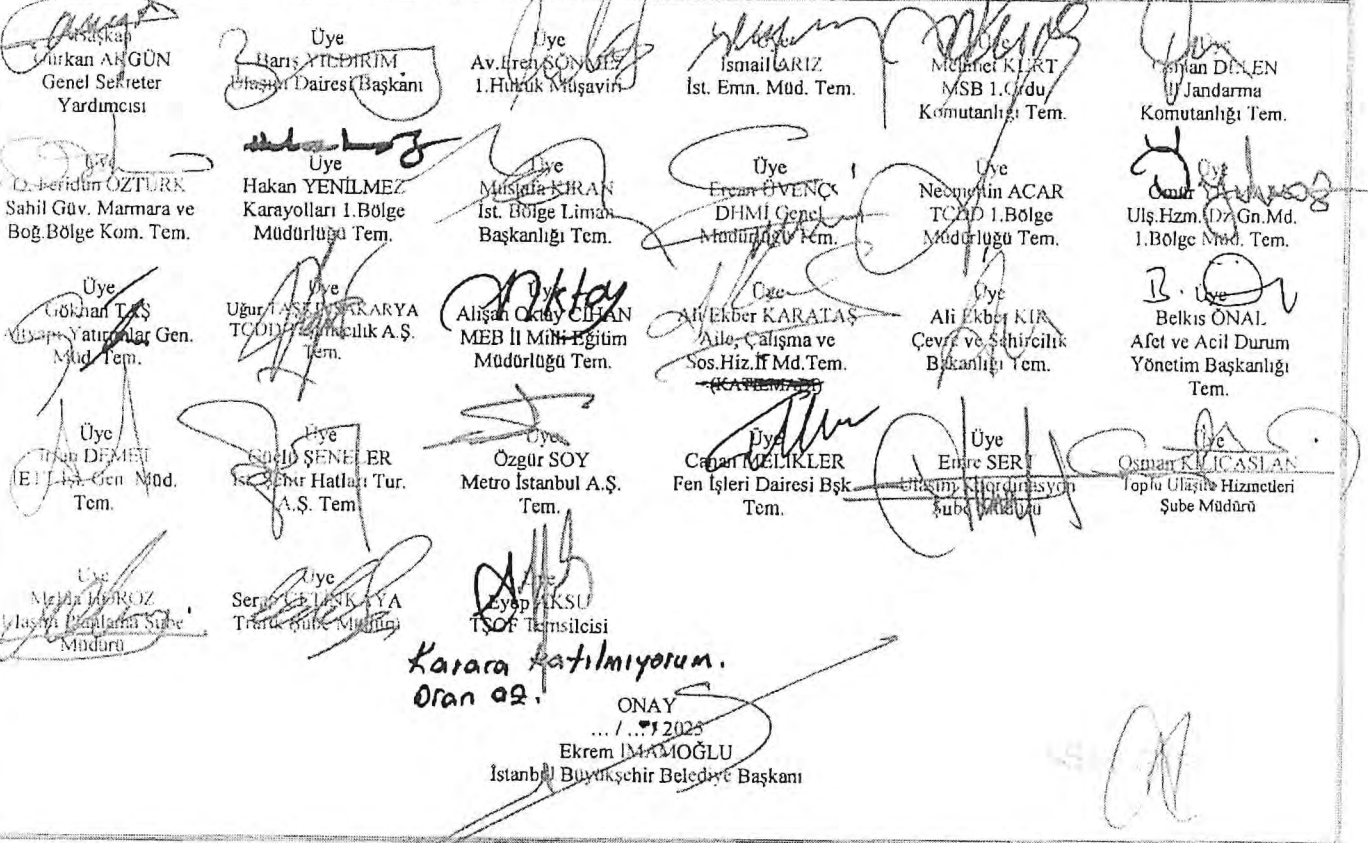 Başkan
Gürkan AKGÜN
Genel Sekreter
Yardımcısı
Üye
Barış YILDIRIM
Ulaşım Dairesi Başkanı
Üye
Av. Eren SÖNMEZ
1.Hukuk Müşaviri
Üye
İsmail ARIZ
İst. Emn. Müd. Tem.
Üye
Mehmet KURT
MSB 1.Ordu
Komutanlığı Tem.
Üye
Osman DİLEN
İl Jandarma
Komutanlığı Tem.
Üye
D. Feridun ÖZTÜRK
Sahil Güv. Marmara ve
Boğ.Bölge Kom. Tem.
Üye
Hakan YENİLMEZ
Karayolları 1.Bölge
Müdürlüğü Tem.
Üye
Mustafa KIRAN
İst. Bölge Liman
Başkanlığı Tem.
Üye
Ercan ÖVENÇ
DHMİ Genel
Müdürlüğü Tem.
Üye
Necmettin ACAR
TCDD 1.Bölge
Müdürlüğü Tem.
Üye
Ömür
Ulş.Hzm. Dz.Gn.Md.
1.Bölge Müd. Tem.
Üye
Gökhan TAŞ
Altyapı Yatırımlar Gen.
Müd. Tem.
Üye
Uğur
TCDD Taşımacılık A.Ş.
Tem.
Üye
Alişan Oktay CİHAN
MEB İl Milli Eğitim
Müdürlüğü Tem.
Üye
Ali Ekber KARATAŞ
Aile, Çalışma ve
Sos.Hiz.İl Md.Tem.
(KATILMADI)
Üye
Ali Ekber KIR
Çevre ve Şehircilik
Bakanlığı Tem.
B.
Üye
Belkıs ÖNAL
Afet ve Acil Durum
Yönetim Başkanlığı
Tem.
Üye
DEMET
İETT İşl. Gen. Müd.
Tem.
Üye
Güçlü ŞENELER
İst. Şehir Hatları Tur.
A.Ş. Tem
Üye
Özgür SOY
Metro İstanbul A.Ş.
Tem.
Üye
Canan MELİKLER
Fen İşleri Dairesi Bşk.
Tem.
Üye
Emre SERT
Ulaşım Koordinasyon
Şube Müdürü
Üye
Osman KILIÇASLAN
Toplu Ulaşım Hizmetleri
Şube Müdürü
Üye
Melda HOROZ
Ulaşım Planlama Şube
Müdürü
Üye
Serap ÇETİNKAYA
Trafik Şube Müdürü
Üye
Eyüp AKSU
TŞOF Temsilcisi
Karara katılmıyorum.
Oran az.
ONAY
... / ... 2025
Ekrem İMAMOĞLU
İstanbul Büyükşehir Belediye Başkanı